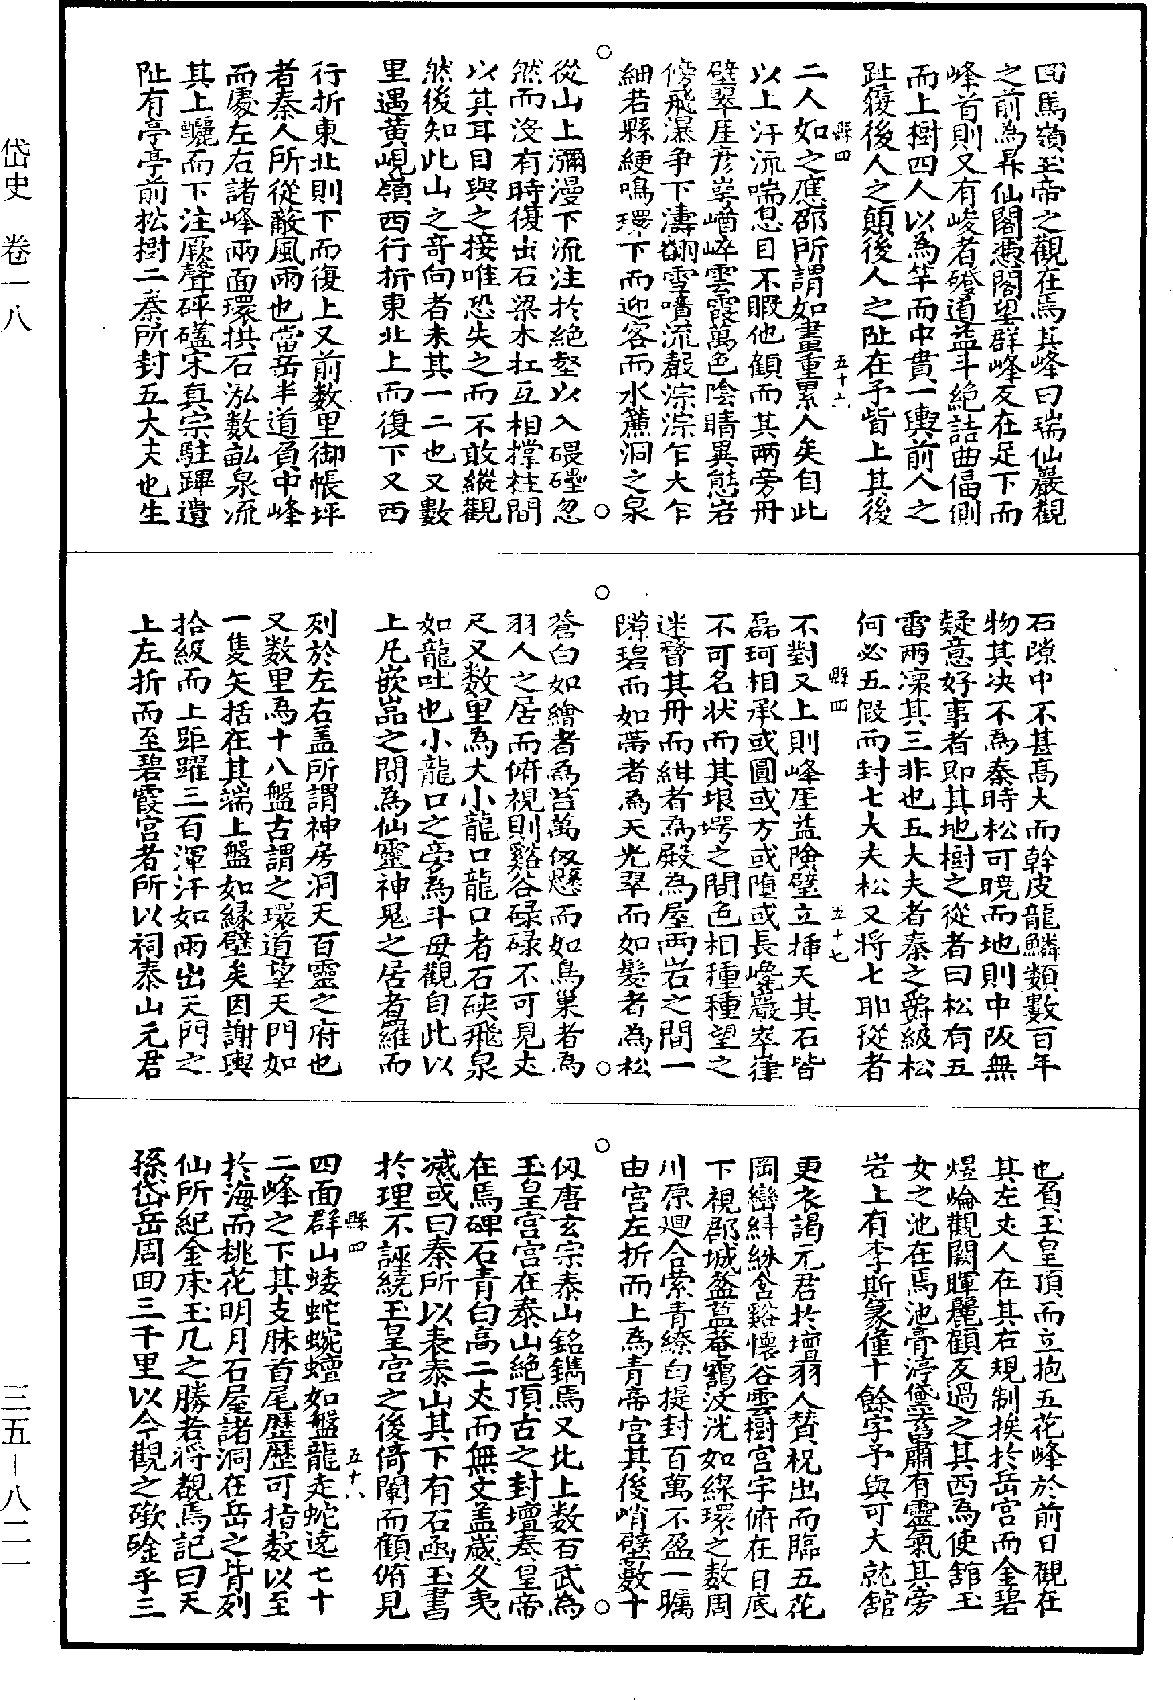 岱史 卷一八
三五—八二二
回馬嶺玉帝之觀在焉其峰曰瑞仙巖觀
之前為昇仙閣憑閣望群峰反在足下而
峰首則又有峻者磴道益斗絕詰曲偪側
而上樹四人以為竿而中貫一輿前人之
趾復後人之顛後人之趾在予皆上其後
縣四
五十六
二人如之應邵所謂如畫重累人矣自此
以上汗流喘息目不暇他顧而其兩旁丹
壁翠崖彦崿嶒崒雲霞萬色陰晴異態岩
傍飛瀑爭下濤翻雪噴流聲淙淙乍大乍
細若縣綆鳴環下而迎客而水簾洞之泉
從山上瀰漫下流注於絕壑以入碨礧忽
然而沒有時復出石梁木杠互相撐柱間
以其耳目與之接唯恐失之而不敢縱觀
然後知此山之奇向者未其一二也又數
里遇黃峴嶺西行折東北上而復下又西
行折東北則下而復上又前数里御帳坪
者秦人所從蔽風雨也當岳半道負中峰
而處左右諸峰兩面環拱石泓數畝泉流
其上曬而下注厥聲砰礚宋真宗駐蹕遺
阯有亭亭前松樹二秦所封五大夫也生
石隙中不甚高大而幹皮龍鱗類數百年
物其决不為秦時松可曉而地則中阪無
疑意好事者即其地樹之從者曰松有五
雷兩凜其三非也五大夫者秦之爵級松
何必五假而封七大夫松又将七耶從者
縣四
五十七
不對又上則峰崖益險壁立插天其石皆
磊砢相承或圓或方或墮或長巉巖崒嵂
不可名状而其垠堮之間色相種種望之
迷瞀其丹而紺者為殿為屋兩岩之間一
隙碧而如帶者為天光翠而如髮者為松
蒼白如繪者為苔萬仭懸而如鳥巢者為
羽人之居而俯視則谿谷碌碌不可見丈
尺又数里為大小龍口龍口者石硤飛泉
如龍吐也小龍口之旁為斗母觀自此以
上凡嵌嵓之間為仙靈神鬼之居者羅而
列於左右盖所謂神房洞天百靈之府也
又数里為十八盤古謂之環道望天門如
一隻矢括在其端上盤如緣壁矣因謝輿
拾級而上距躍三百渾汗如雨出天門之
上左折而至碧霞宮者所以祠泰山元君
也負玉皇頂而立抱五花峰於前日觀在
其左丈人在其右規制挨於岳宮而金碧
煜爚觀闕暉麗顧反過之其西為使舘玉
女之池在焉池膏渟黛蓄肅有靈氣其旁
岩上有李斯篆僅十餘字予與可大就舘
更衣謁元君於壇羽人賛祝出而臨五花
岡巒糾紛含谿懷谷雲樹宮宇俯在日底
下視郡城盎葢菴靄汶洸如綠環之数周
川原迴合縈青繚白提封百萬不盈一矚
由宮左折而上為青帝宮其後峭壁數十
仭唐玄宗泰山銘鐫焉又北上数百武為
玉皇宮宮在泰山絕頂古之封壇秦皇帝
在焉碑石青白高二丈而無文盖歲久夷
滅或曰秦所以表泰山其下有石函玉書
於理不誣繞玉皇宮之後倚闌而顧俯見
縣四
五十八
四面群山蜲蛇蜿蟺如盤龍走蛇遠七十
二峰之下其支脉首尾歷歷可指数以至
於海而桃花明月石屋諸洞在岳之背列
仙所紀金床玉几之勝者将觀焉記曰天
孫岱岳周回三千里以今觀之嶔崟乎三